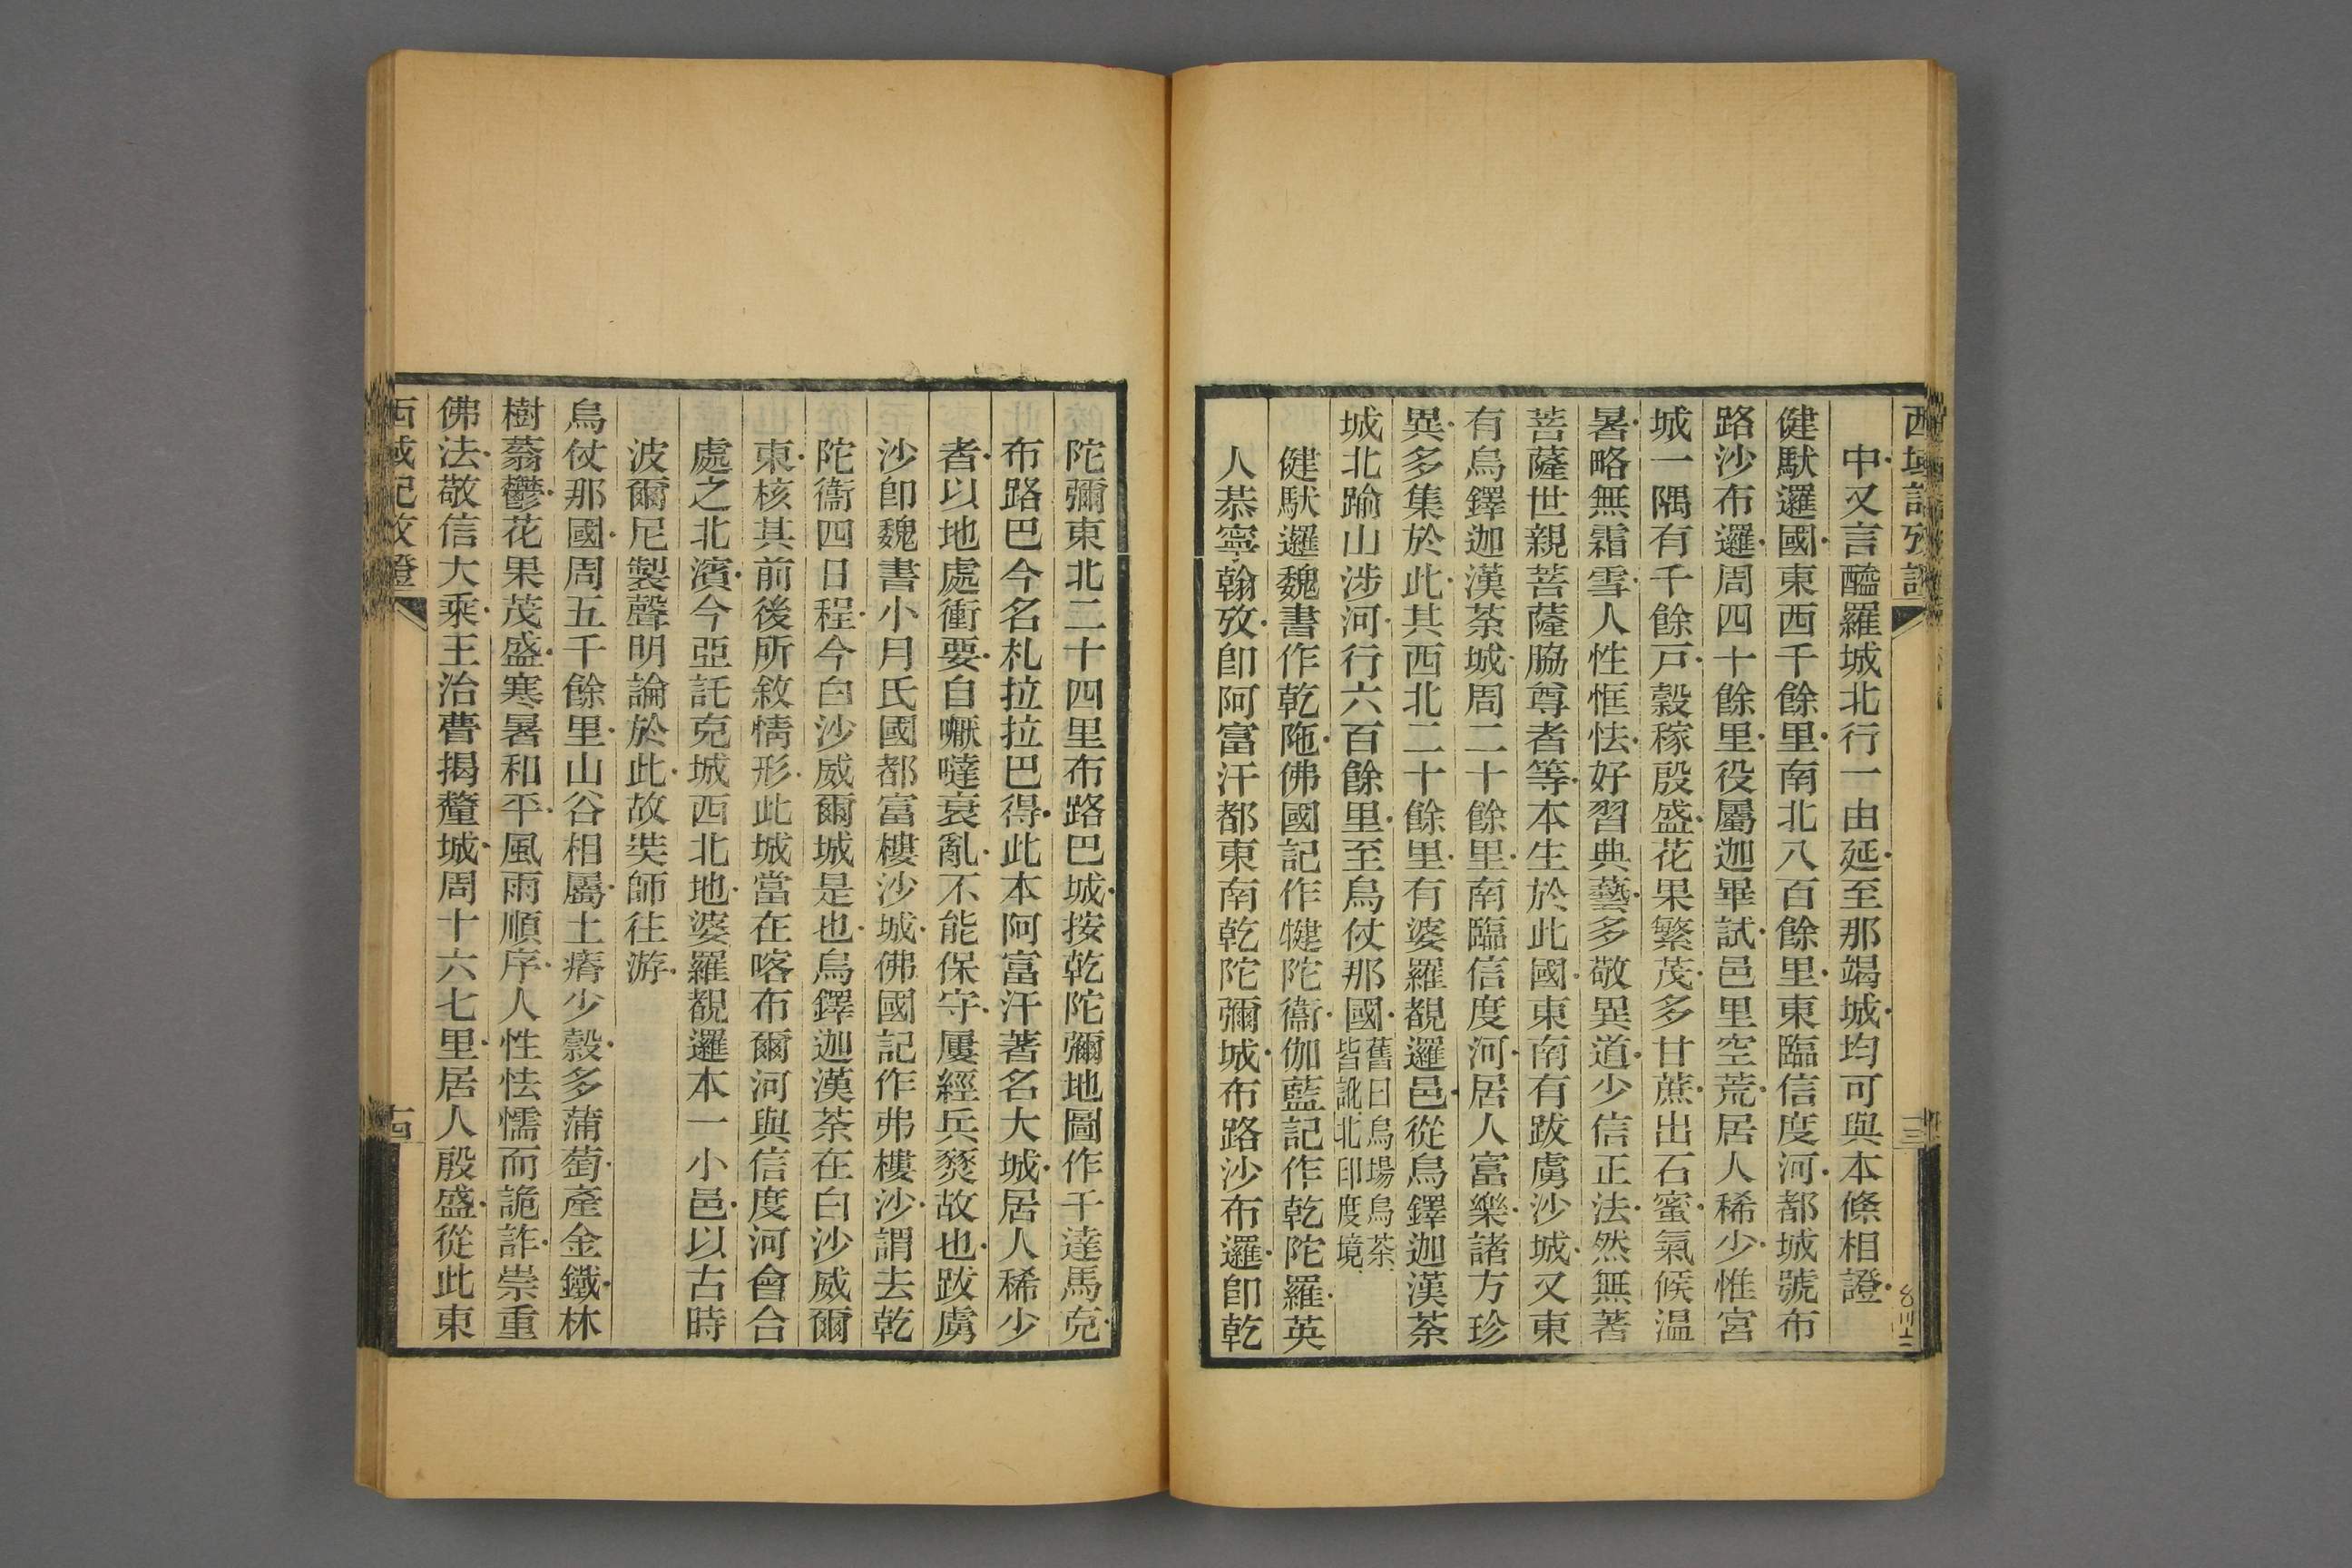 西域記攷證
中又言醯羅城北行一由延至那竭城均可與本條相證
健馱邏國東西千餘里南北八百餘里東臨信度河都城號布
路沙布邏周四十餘里役屬迦畢試邑里空荒居人稀少惟宮
城一隅有千餘戸穀稼殷盛花果繁茂多甘蔗出石蜜氣候温
暑略無霜雪人性恇怯好習典藝多敬異道少信正法然無著
菩薩世親菩薩脇尊者等本生於此國東南有跋虜沙城又東
有烏鐸迦漢荼城周二十餘里南臨信度河居人富樂諸方珍
異多集於此其西北二十餘里有婆羅覩邏邑從烏鐸迦漢荼
城北踰山涉河行六百餘里至烏仗那國舊曰烏場烏荼
皆訛北印度境
健馱邏魏書作乾陁佛國記作犍陀衞伽藍記作乾陀羅英
人恭寧翰攷卽阿富汗都東南乾陀彌城布路沙布邏卽乾
陀彌東北二十四里布路巴城按乾陀彌地圖作干達馬克
布路巴今名札拉拉巴得此本阿富汗著名大城居人稀少
者以地處衝要自嚈噠衰亂不能保守屢經兵燹故也跋虜
沙卽魏書小月氏國都富樓沙城佛國記作弗樓沙謂去乾
陀衞四日程今白沙威爾城是也烏鐸迦漢荼在白沙威爾
東核其前後所敘情形此城當在喀布爾河與信度河會合
處之北濱今亞託克城西北地婆羅覩邏本一小邑以古時
波爾尼製聲明論於此故奘師往游
烏仗那國周五千餘里山谷相屬土瘠少穀多蒲萄產金鐵林
樹蓊鬱花果茂盛寒暑和平風雨順序人性怯懦而詭詐崇重
佛法敬信大乘王治瞢揭釐城周十六七里居人殷盛從此東
西域記攷證
十四